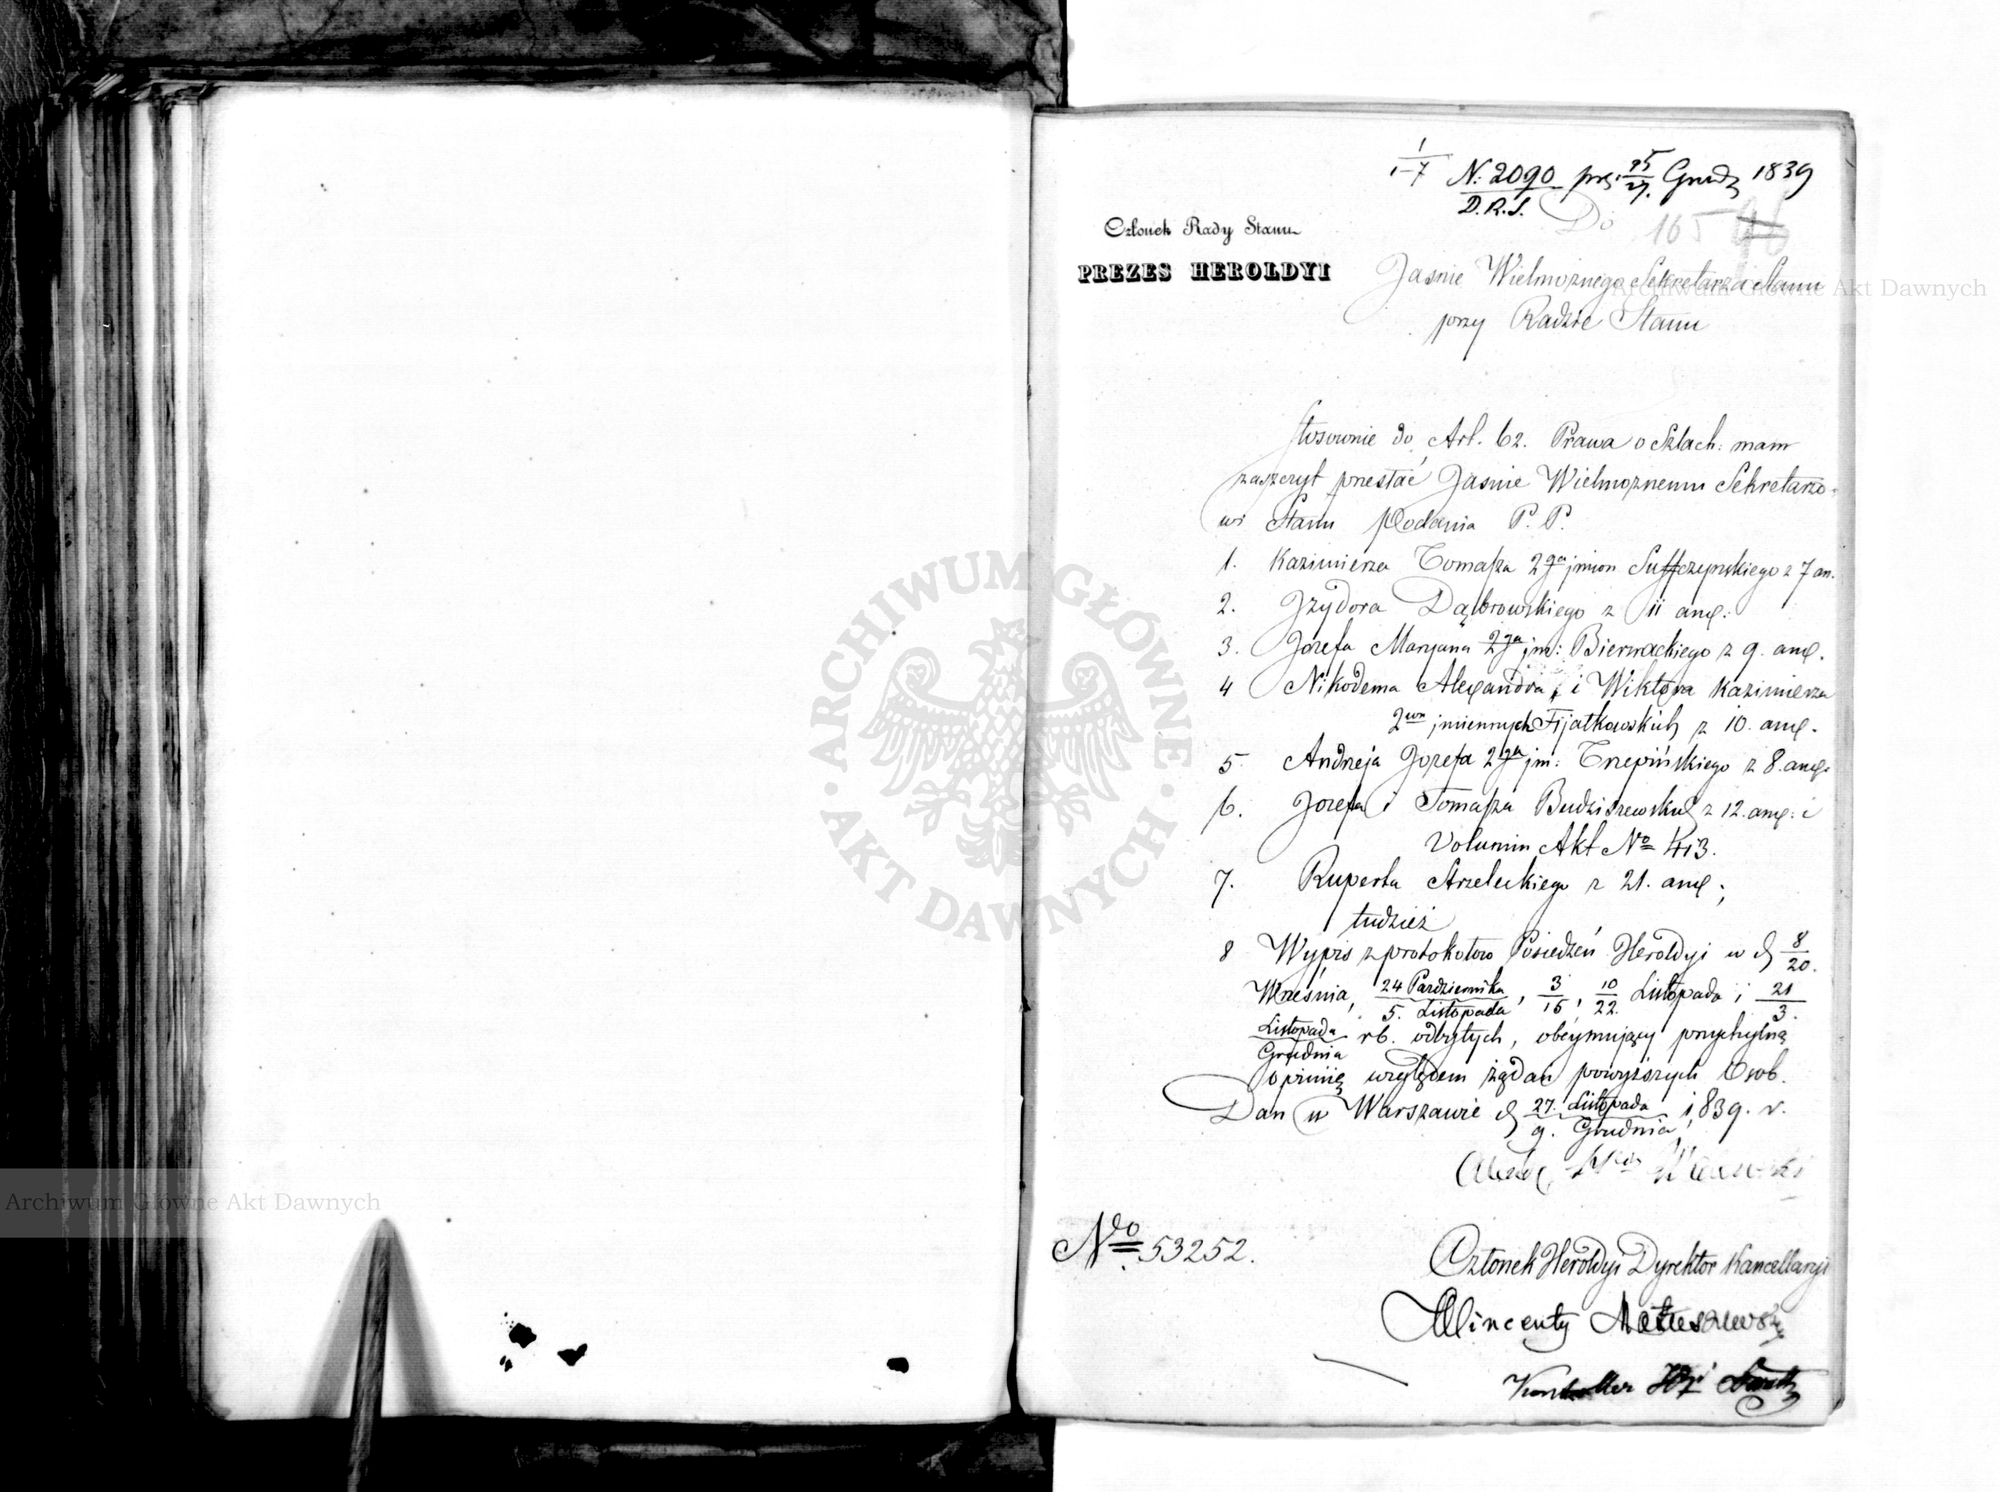 N: 2090 prs: 15/27. Grud 1839
D.R.S.
Do
165
Członek Rady Stanu
PREZES HEROLDYI
Jaśnie Wielmożnego Sekretarza Stanu
przy Radzie Stanu
Stosownie do Art. 62. Prawa o Szlach: mam
zaszczyt przesłać Jaśnie Wielmożnemu Sekretarzo-
wi Stanu Podania P. P.
1. Kazimierza Tomasza 2ga imion Suffczyńskiego z 7 an.
2. Izydora Dąbrowskiego z 11 anx:
3. Józefa Maryana 2ga jm: Biernackiego z 9. anx.
4 Nikodema Alexandra i Wiktora Kazimierza
2wu jmiennych Fijałkowskich z 10. anx.
5. Andrzeja Józefa 2ga jm: Trzepińskiego z 8. anx.
6. Józefa i Tomasza Budziszewskich z 12. anx: i
Volumin Akt No 413.
7. Ruperta Strzeleckiego z 21. anx;
tudzież
8 Wypis z protokołów Posiedzeń Heroldyi w d 8/20.
Września, 24 Października/5. Listopada, 3/15, 10/22. Listopada i 21/3.
Listopada/Grudnia rb. odbytych, obeymujący przychylną
opinię względem żądań powyższych Osób.
Dan w Warszawie d 27. Listopada/9. Grudnia 1839. r.
No 53252.
Członek Heroldyi Dyrektor Kancellaryi
Wincenty Matuszewski
Kontroller
ARCHIWUM GŁÓWNE
AKT DAWNYCH
Archiwum Główne Akt Dawnych
Archiwum Główne Akt Dawnych